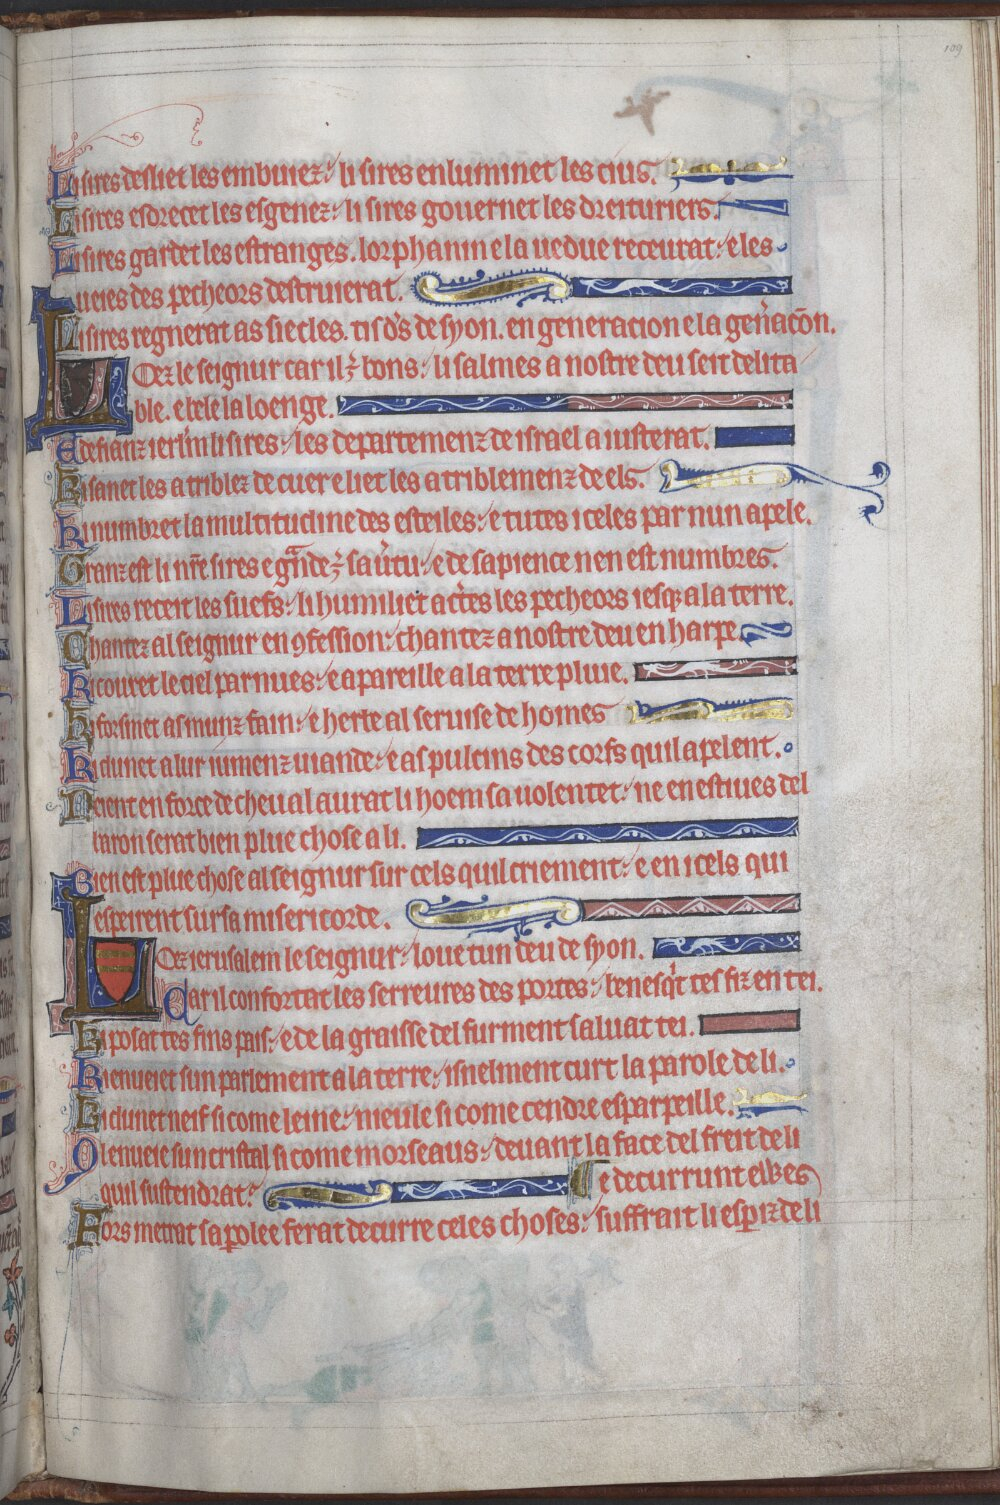 109
Li sires desliet les embuiez: li sires enluminet les cius.
Li sires esdrecet les esgenez: li sires guuernet les dreituriers.
Li sires gardet les estranges. lorphanin e la uedue receurat: e les
ueies des pecheors destruierat.
Li sires regnerat as siecles. tis ds̄ de syon. en generacion e la gen̄acōn.
Loez le seignur car il ꝫ bons: li salmes a nostre deu seit delita
ble. e bele la loenge.
Edefianz ierl̄m li sires: les departemenz de israel aiusterat.
Ki sanet les atriblez de cuer e liet les atriblemenz de els.
Ki numbret la multitudine des esteiles: e tutes iceles par nun apele.
Granz est li nr̄e sires e gͣnde ꝫ sa ūtu: e de sapience nen est numbres.
Li sires receit les suefs: li humiliet acertes les pecheors iesqͣ a la terre.
Chantez al seignur en ꝯfession: chantez a nostre deu en harpe.
Ki couret le ciel par nues: e apareille a la terre pluie.
Ki forsmet as munz fain: e herbe al seruise de homes
Ki dunet a lur iumenz uiande: e as pulcins des corfs qui lapelent.
Neient en force de cheual aurat li hoem sa uolentet: ne en estiues del
baron serat bien plue chose a li.
Bien est plue chose al seignur sur cels qui l criement: e en icels qui
espeirent sur sa misericorde.
Loez ierusalem le seignur: loue tun deu de syon.
Car il confortat les serreures des portes: benesqͥt tes fiz en tei.
Ki posat tes fins pais: e de la graisse del furment saluat tei.
Ki enueiet sun parlement a la terre: isnelment curt la parole de li.
Ki dunet neif si come leine: nieule si come cendre esparpeille.
Ol enueie sun cristal si come morseaus: deuant la face del freit de li
qui l sustendrat?
e decurrunt ewes
Fors metrat sa polee ferat decurre celes choses: suffrait li espiz de li